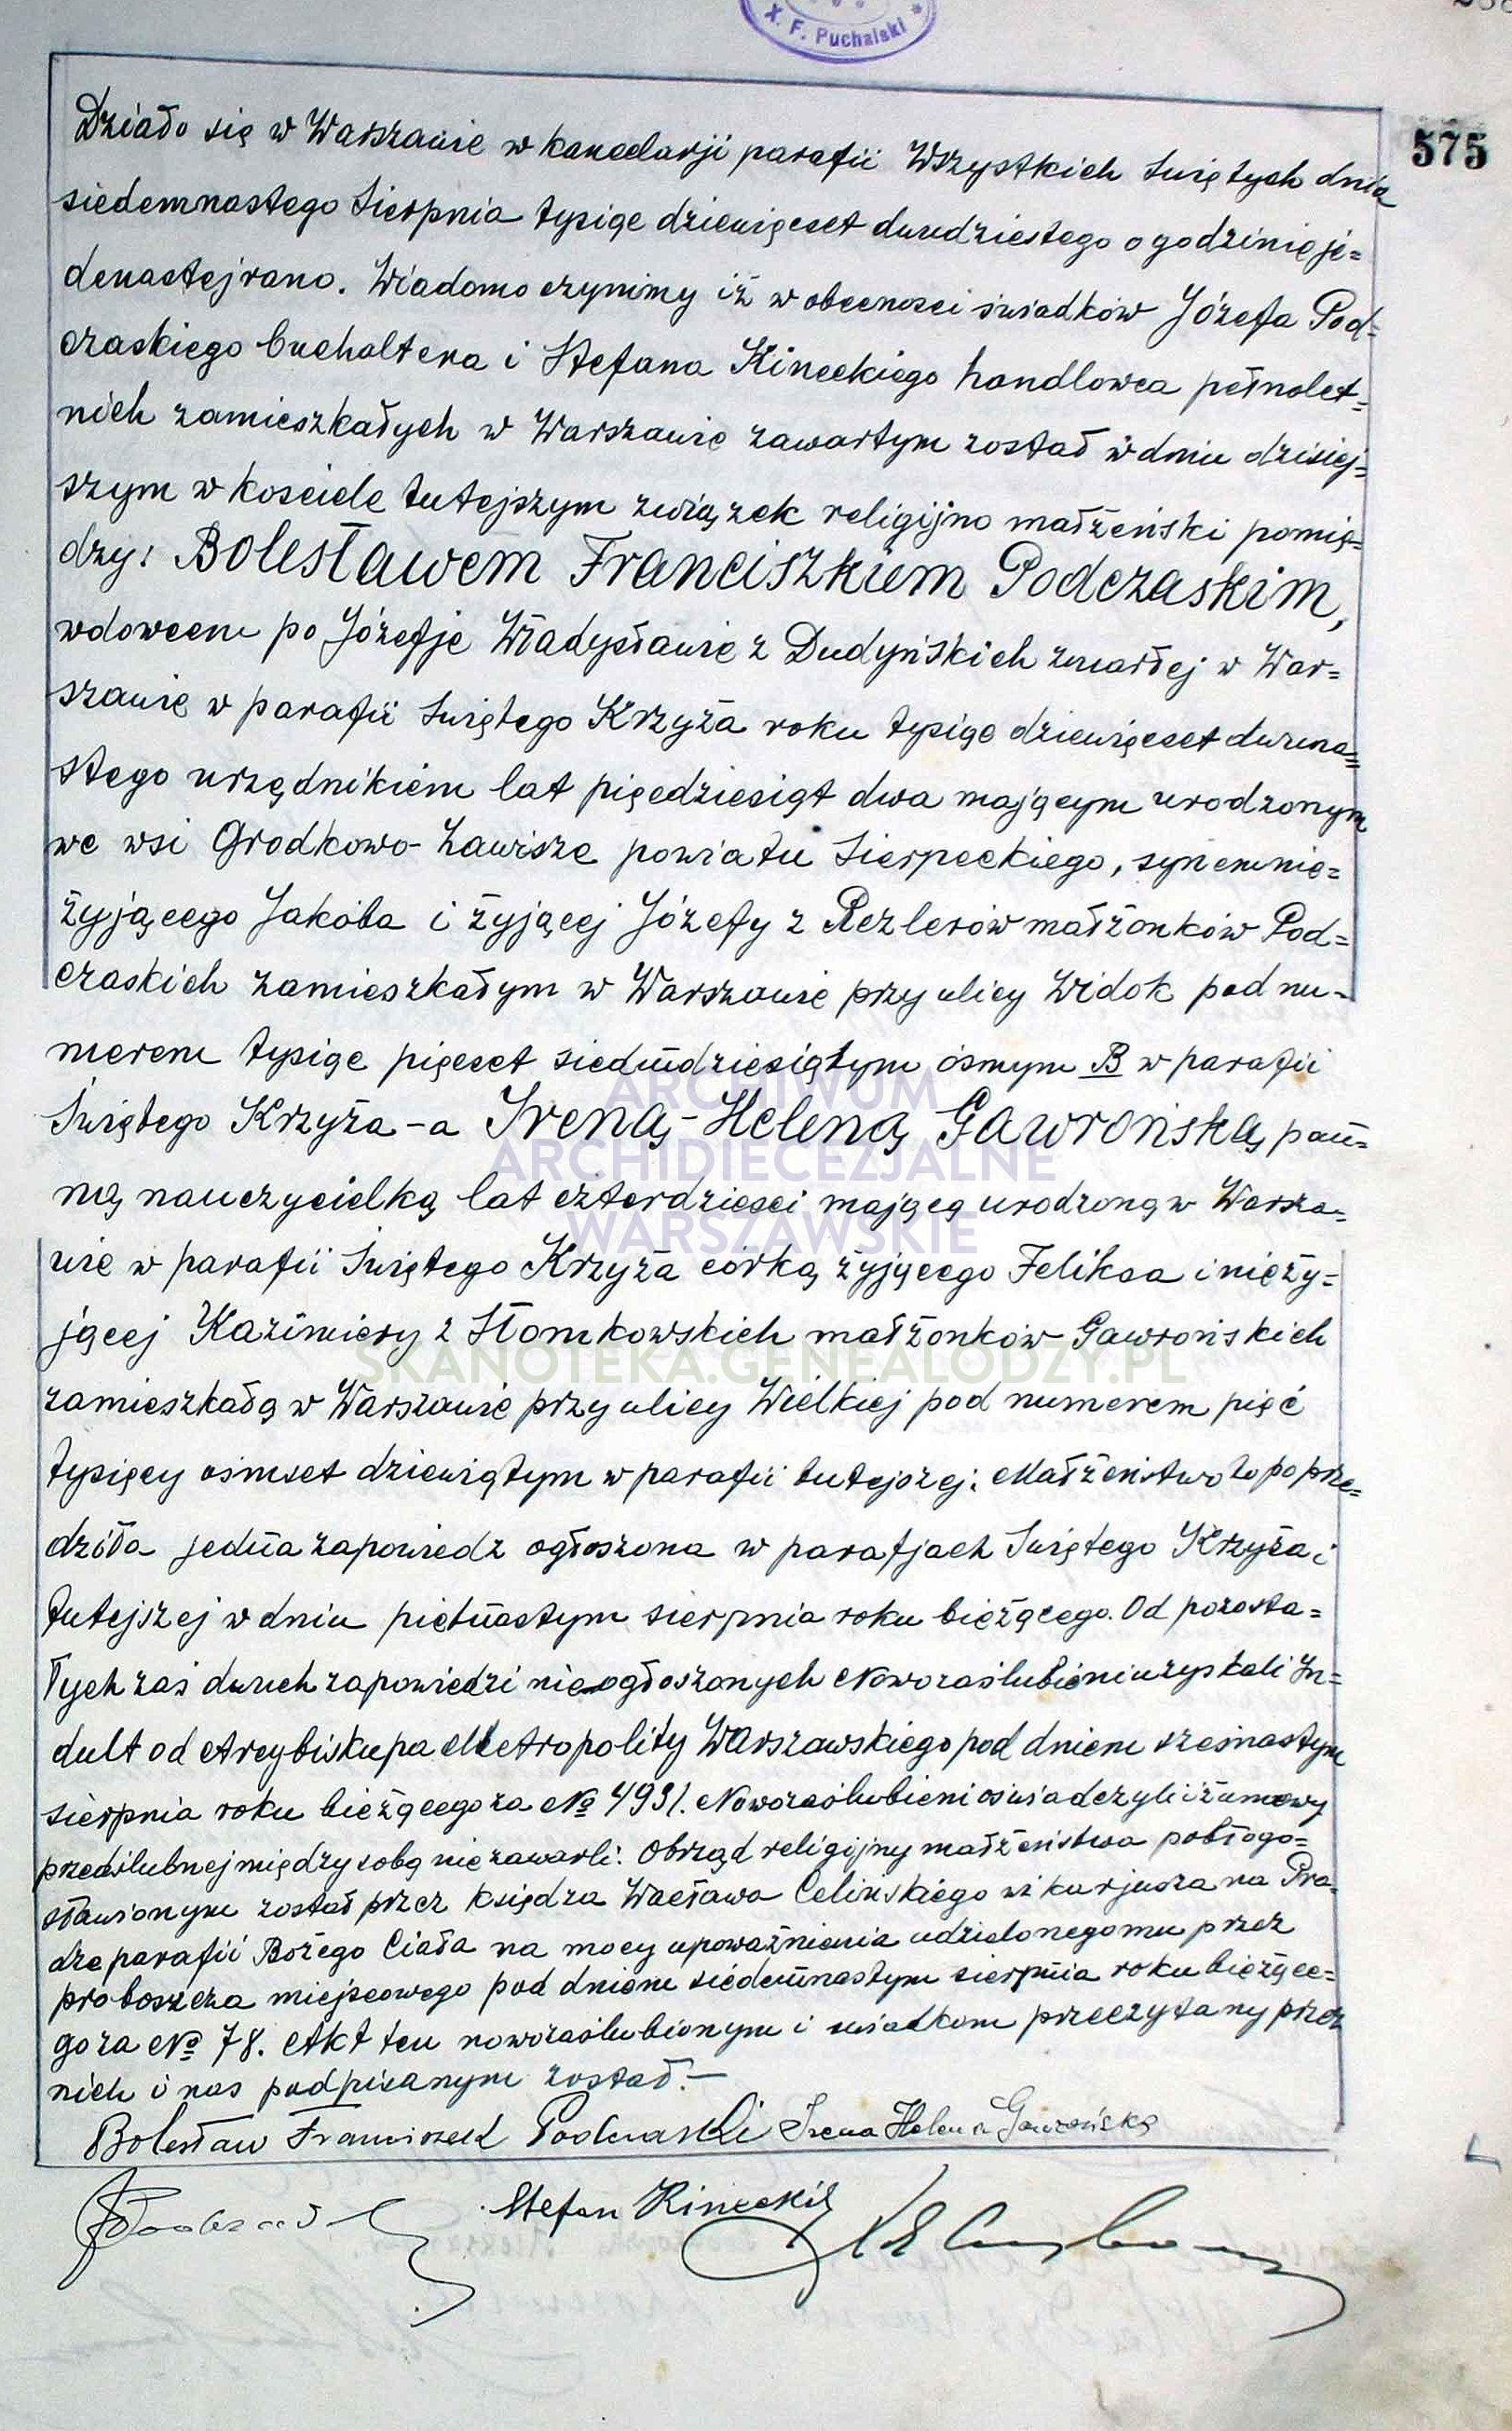 X. F. Puchalski *
575
Działo się w Warszawie w kancelarji parafii Wszystkich Świętych dnia
siedemnastego Sierpnia tysiąc dziewięćset dwudziestego o godzinie je=
denastej rano. Wiadomo czynimy iż w obecności świadków Józefa Pod=
czaskiego buchaltera i Stefana Kineckiego handlowca pełnolet=
nich zamieszkałych w Warszawie zawartym został w dniu dzisiej=
szym w kościele tutejszym związek religijno małżeński pomię=
dzy: Bolesławem Franciszkiem Podczaskim,
wdowcem po Józefje Władysławie z Dudyńskich zmarłej w War=
szawie w parafii Świętego Krzyża roku tysiąc dziewięćset dwuna=
stego urzędnikiem lat pięćdziesiąt dwa mającym urodzonym
we wsi Grodkowo-Zawisze powiatu Sierpeckiego, synem nie=
żyjącego Jakóba i żyjącej Józefy z Rezlerów małżonków Pod=
czaskich zamieszkałym w Warszawie przy ulicy Widok pod nu-
merem tysiąc pięćset siedmdziesiątym ósmym B w parafii
Świętego Krzyża - a Ireną-Heleną Gawrońską, pan=
ną nauczycielką lat czterdzieści mającą urodzoną w Warsza=
wie w parafii Świętego Krzyża córką żyjącego Feliksa i nieży=
jącej Kazimiery z Słomkowskich małżonków Gawrońskich
zamieszkałą w Warszawie przy ulicy Wielkiej pod numerem pięć
tysięcy ośmset dziewiątym w parafii tutejszej: Małżeństwo to poprze=
dziła jedna zapowiedz ogłoszona w parafjach Świętego Krzyża i
tutejszej w dniu piętnastym sierpnia roku bieżącego. Od pozosta=
łych zaś dwuch zapowiedzi nieogłoszonych Nowozaślubieni uzyskali In=
dult od Arcybiskupa Metropolity Warszawskiego pod dniem szesnastym
sierpnia roku bieżącego za No 4931. Nowozaślubieni oświadczyli iż umowy
przedślubnej między sobą nie zawarli. Obrząd religijny małżeństwa pobłogo=
sławionym został przez księdza Wacława Celińskiego wikarjusza na Pra=
dze parafii Bożego Ciała na mocy upoważnienia udzielonego mu przez
proboszcza miejscowego pod dniem siedemnastym sierpnia roku bieżące=
go za No 78. Akt ten nowozaślubionym i świadkom przeczytany przez
nich i nas podpisanym został.—
Bolesław Franciszek Podczaski Irena Helena Gawrońska
Stefan Kinecki
ARCHIWUM
ARCHIDIECEZJALNE
WARSZAWSKIE
SKANOTEKA.GENEALODZY.PL